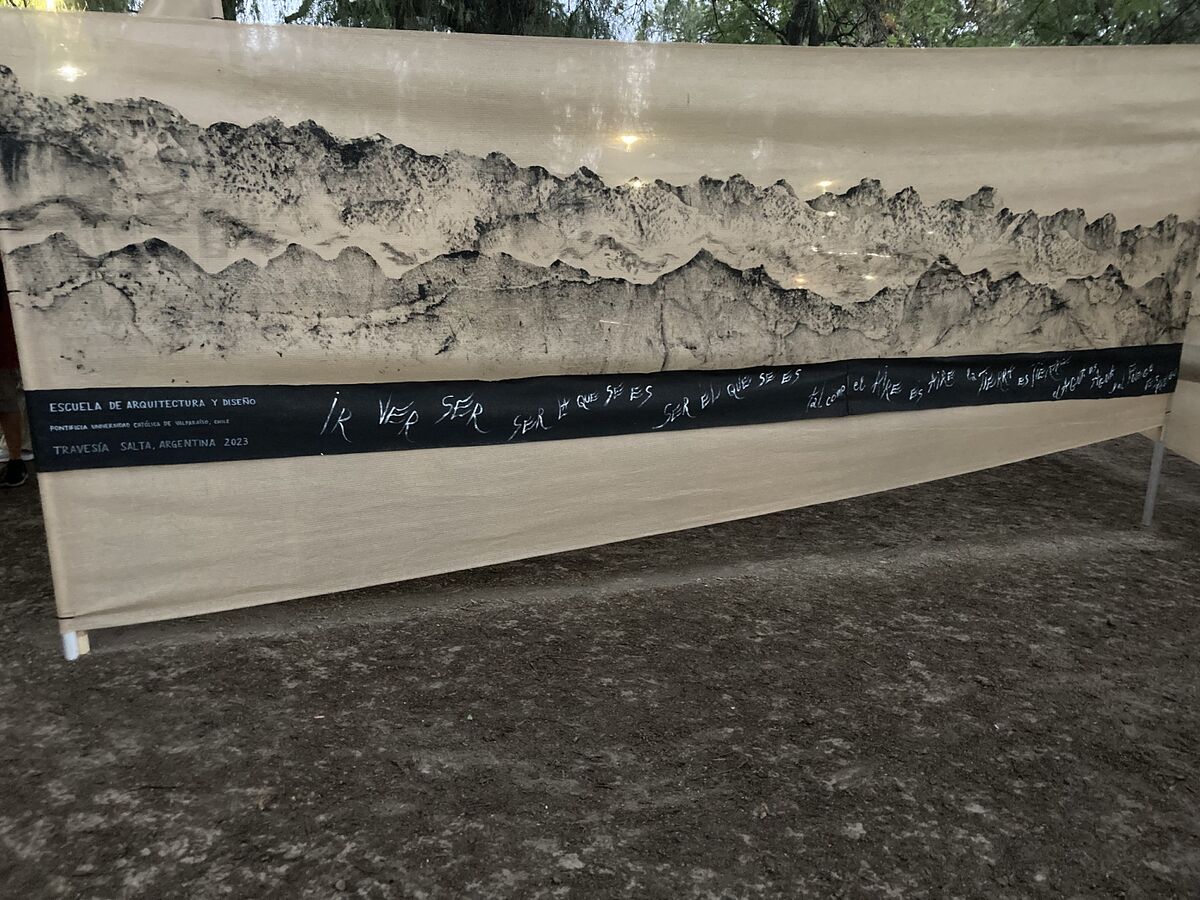 ESCUELA DE ARQUITECTURA Y DISEÑO
PONTIFICIA UNIVERSIDAD CATÓLICA DE VALPARAÍSO, CHILE
TRAVESÍA SALTA, ARGENTINA 2023
iR VER SER SER lA QUE SE ES SER EL QUE SE ES tal como el AIRE ES AIRE la TIERRA ES TIERRA
el AGUA ES AGUA y el FUEGO ES FUEGO